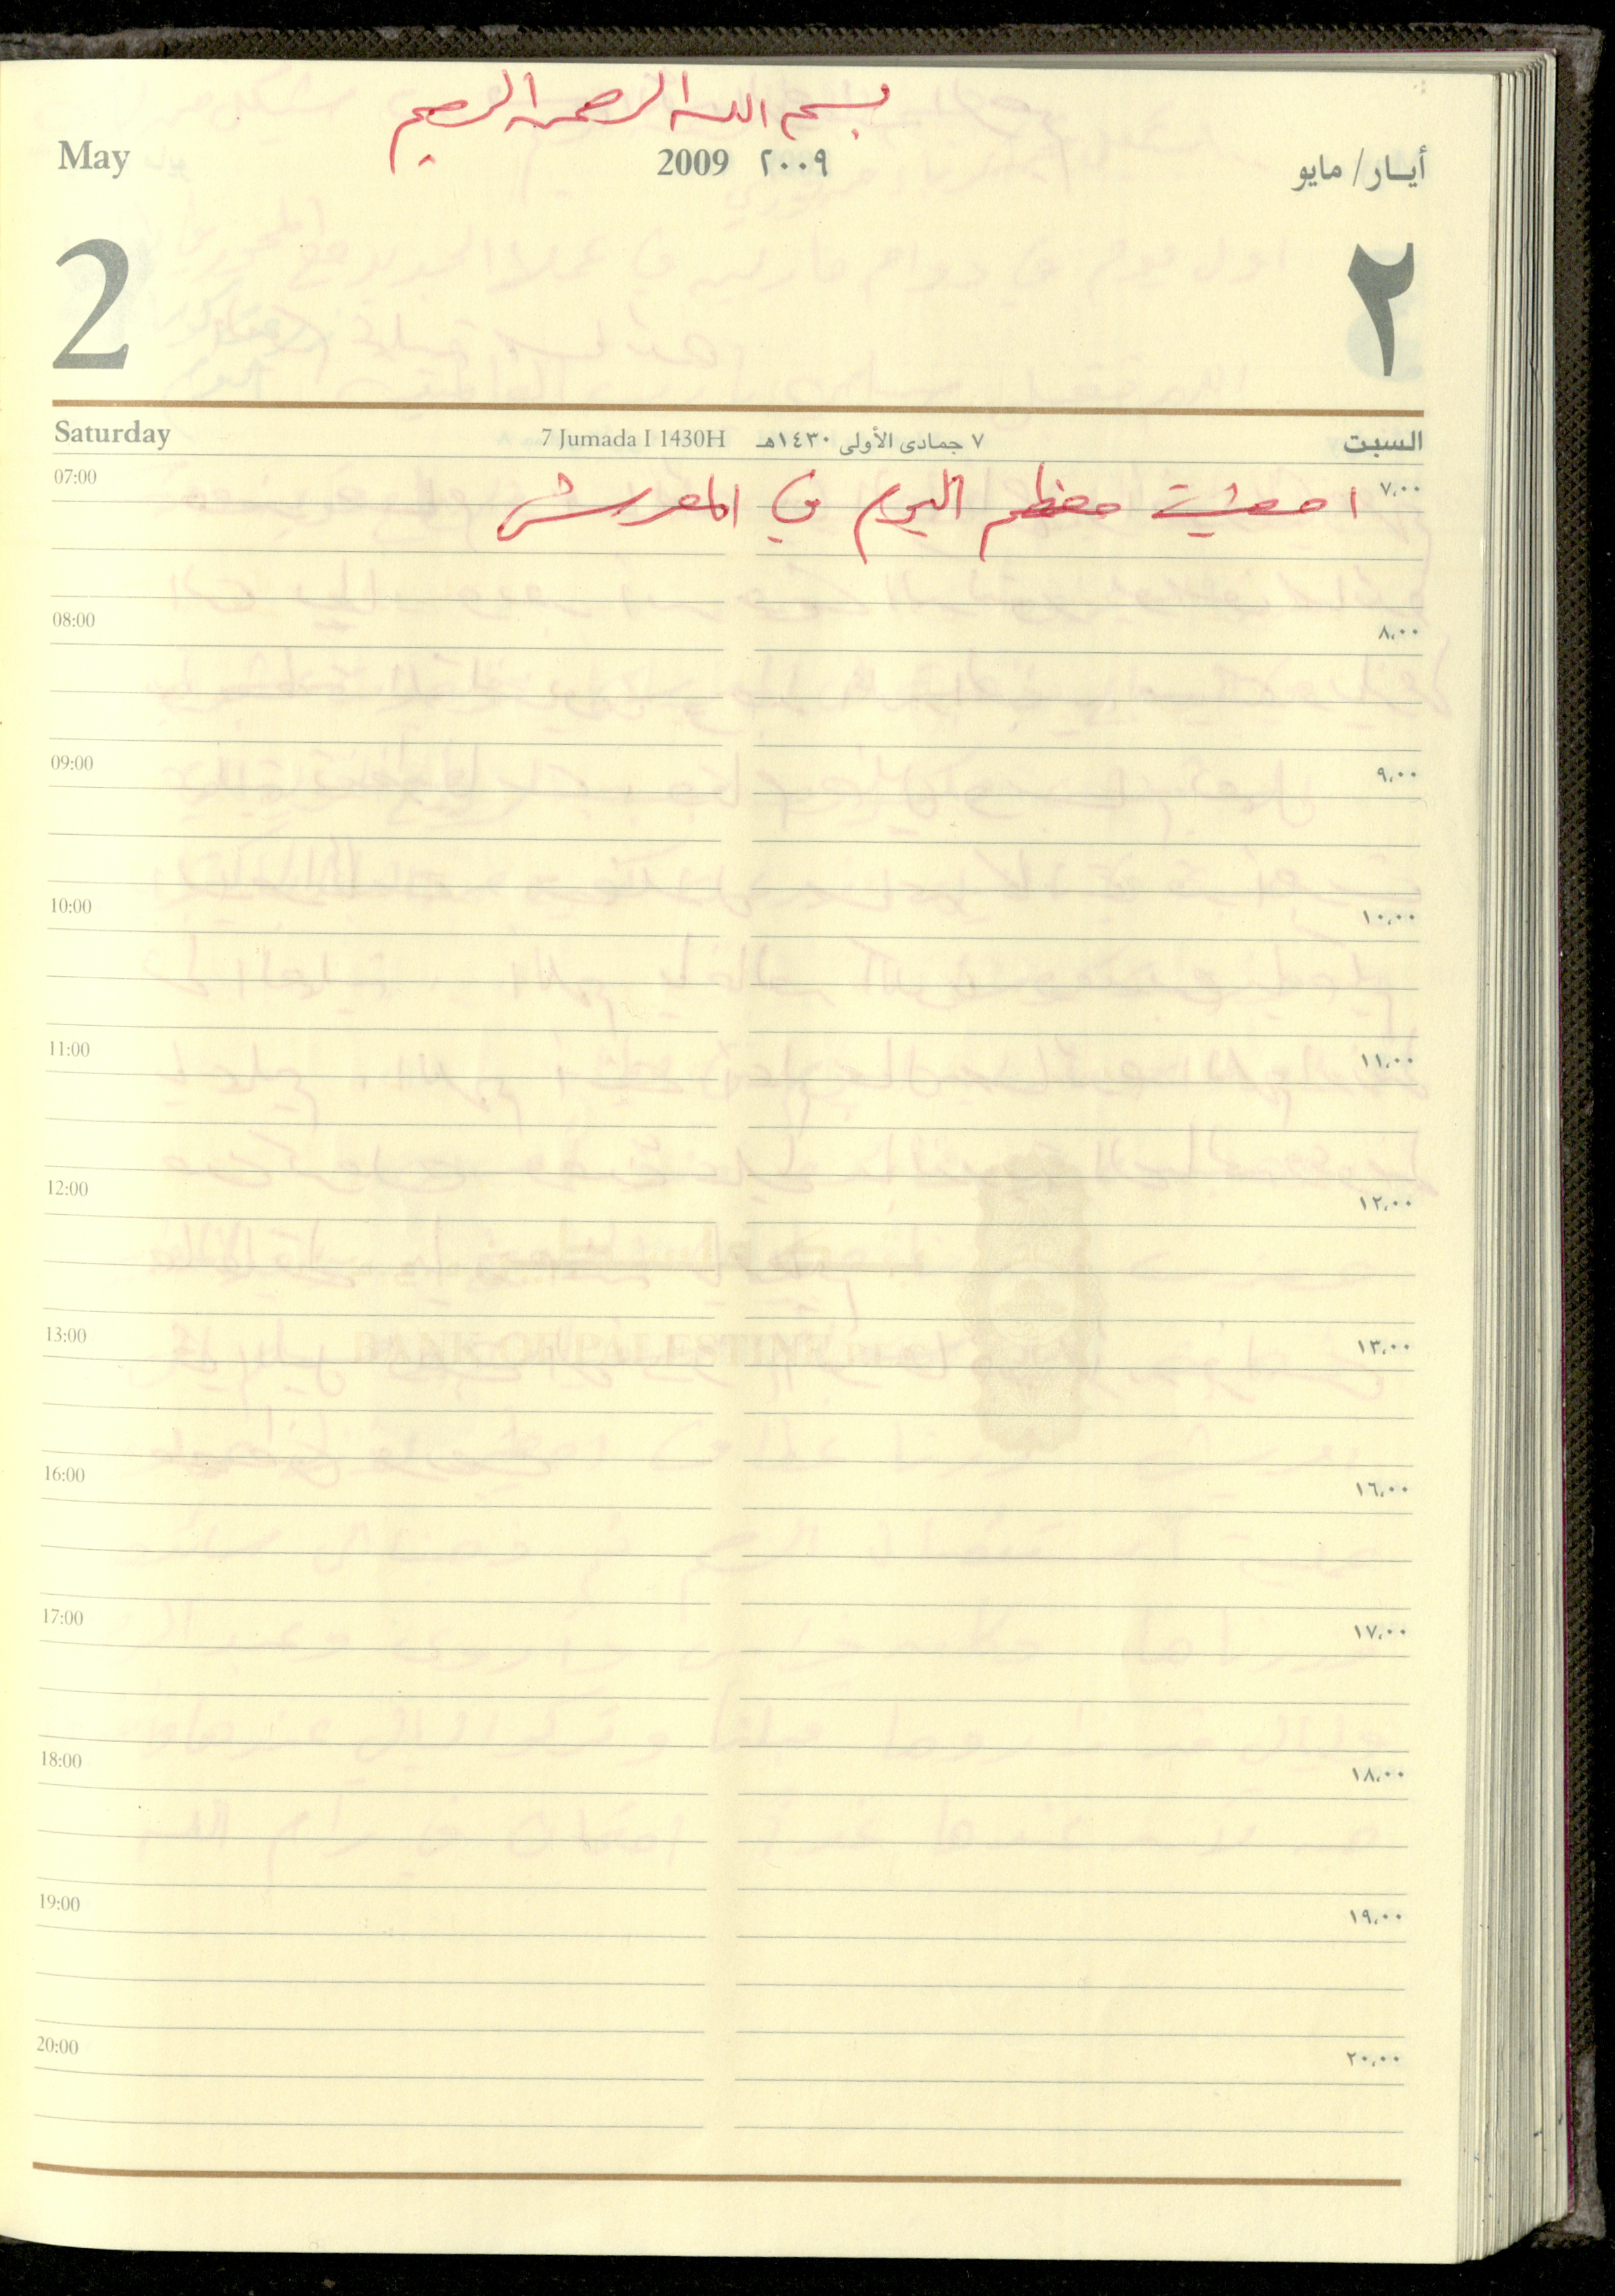 بسم الله الرحمن الرحيم
May 2009 ٢٠٠٩ أيار/ مايو
2 ٢
Saturday 7 Jumada I 1430H ٧ جمادى الأولى ١٤٣٠هـ السبت
07:00 ٧,٠٠
امضيت معظم اليوم في المعرش
08:00 ٨,٠٠
09:00 ٩,٠٠
10:00 ١٠,٠٠
11:00 ١١,٠٠
12:00 ١٢,٠٠
BANK OF PALESTINE
13:00 ١٣,٠٠
16:00 ١٦,٠٠
17:00 ١٧,٠٠
18:00 ١٨,٠٠
19:00 ١٩,٠٠
20:00 ٢٠,٠٠